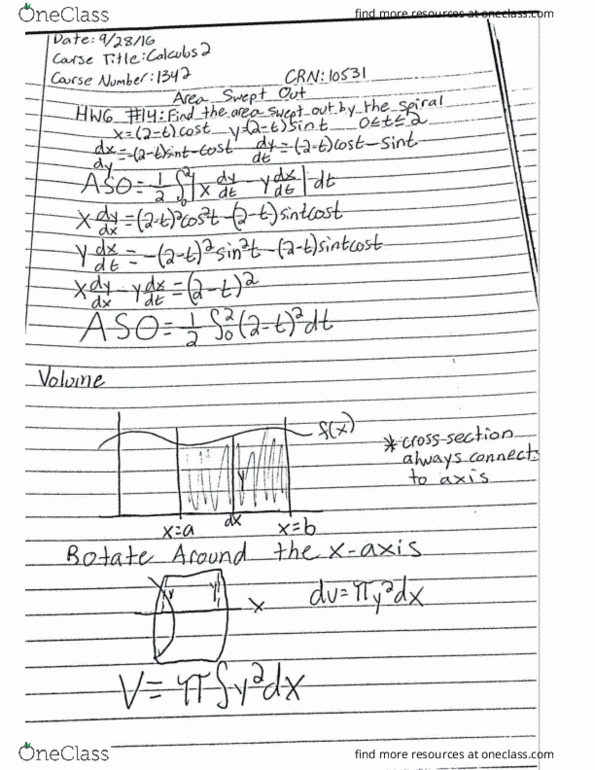 OneClass
find more resources at oneclass.com
Date: 9/28/16
Course Title: Calculus 2
Course Number: 1342
CRN: 10531
Area Swept Out
HW6 #14: Find the area swept out by the spiral
x=(2-t)cost y=(2-t)sint 0≤t≤2
dx/dy=-(2-t)sint-cost dy/dt=(2-t)cost-sint
ASO=1/2∫₀²|x dy/dt - y dx/dt|dt
x dy/dx=(2-t)²cos²t-(2-t)sintcost
y dx/dt=-(2-t)²sin²t-(2-t)sintcost
x dy/dx - y dx/dt=(2-t)²
ASO=1/2∫₀²(2-t)²dt
Volume
f(x)
*cross-section
always connect
to axis
y
x=a dx x=b
Rotate Around the x-axis
y y
x
dv=πy²dx
V=π∫y²dx
OneClass
find more resources at oneclass.com